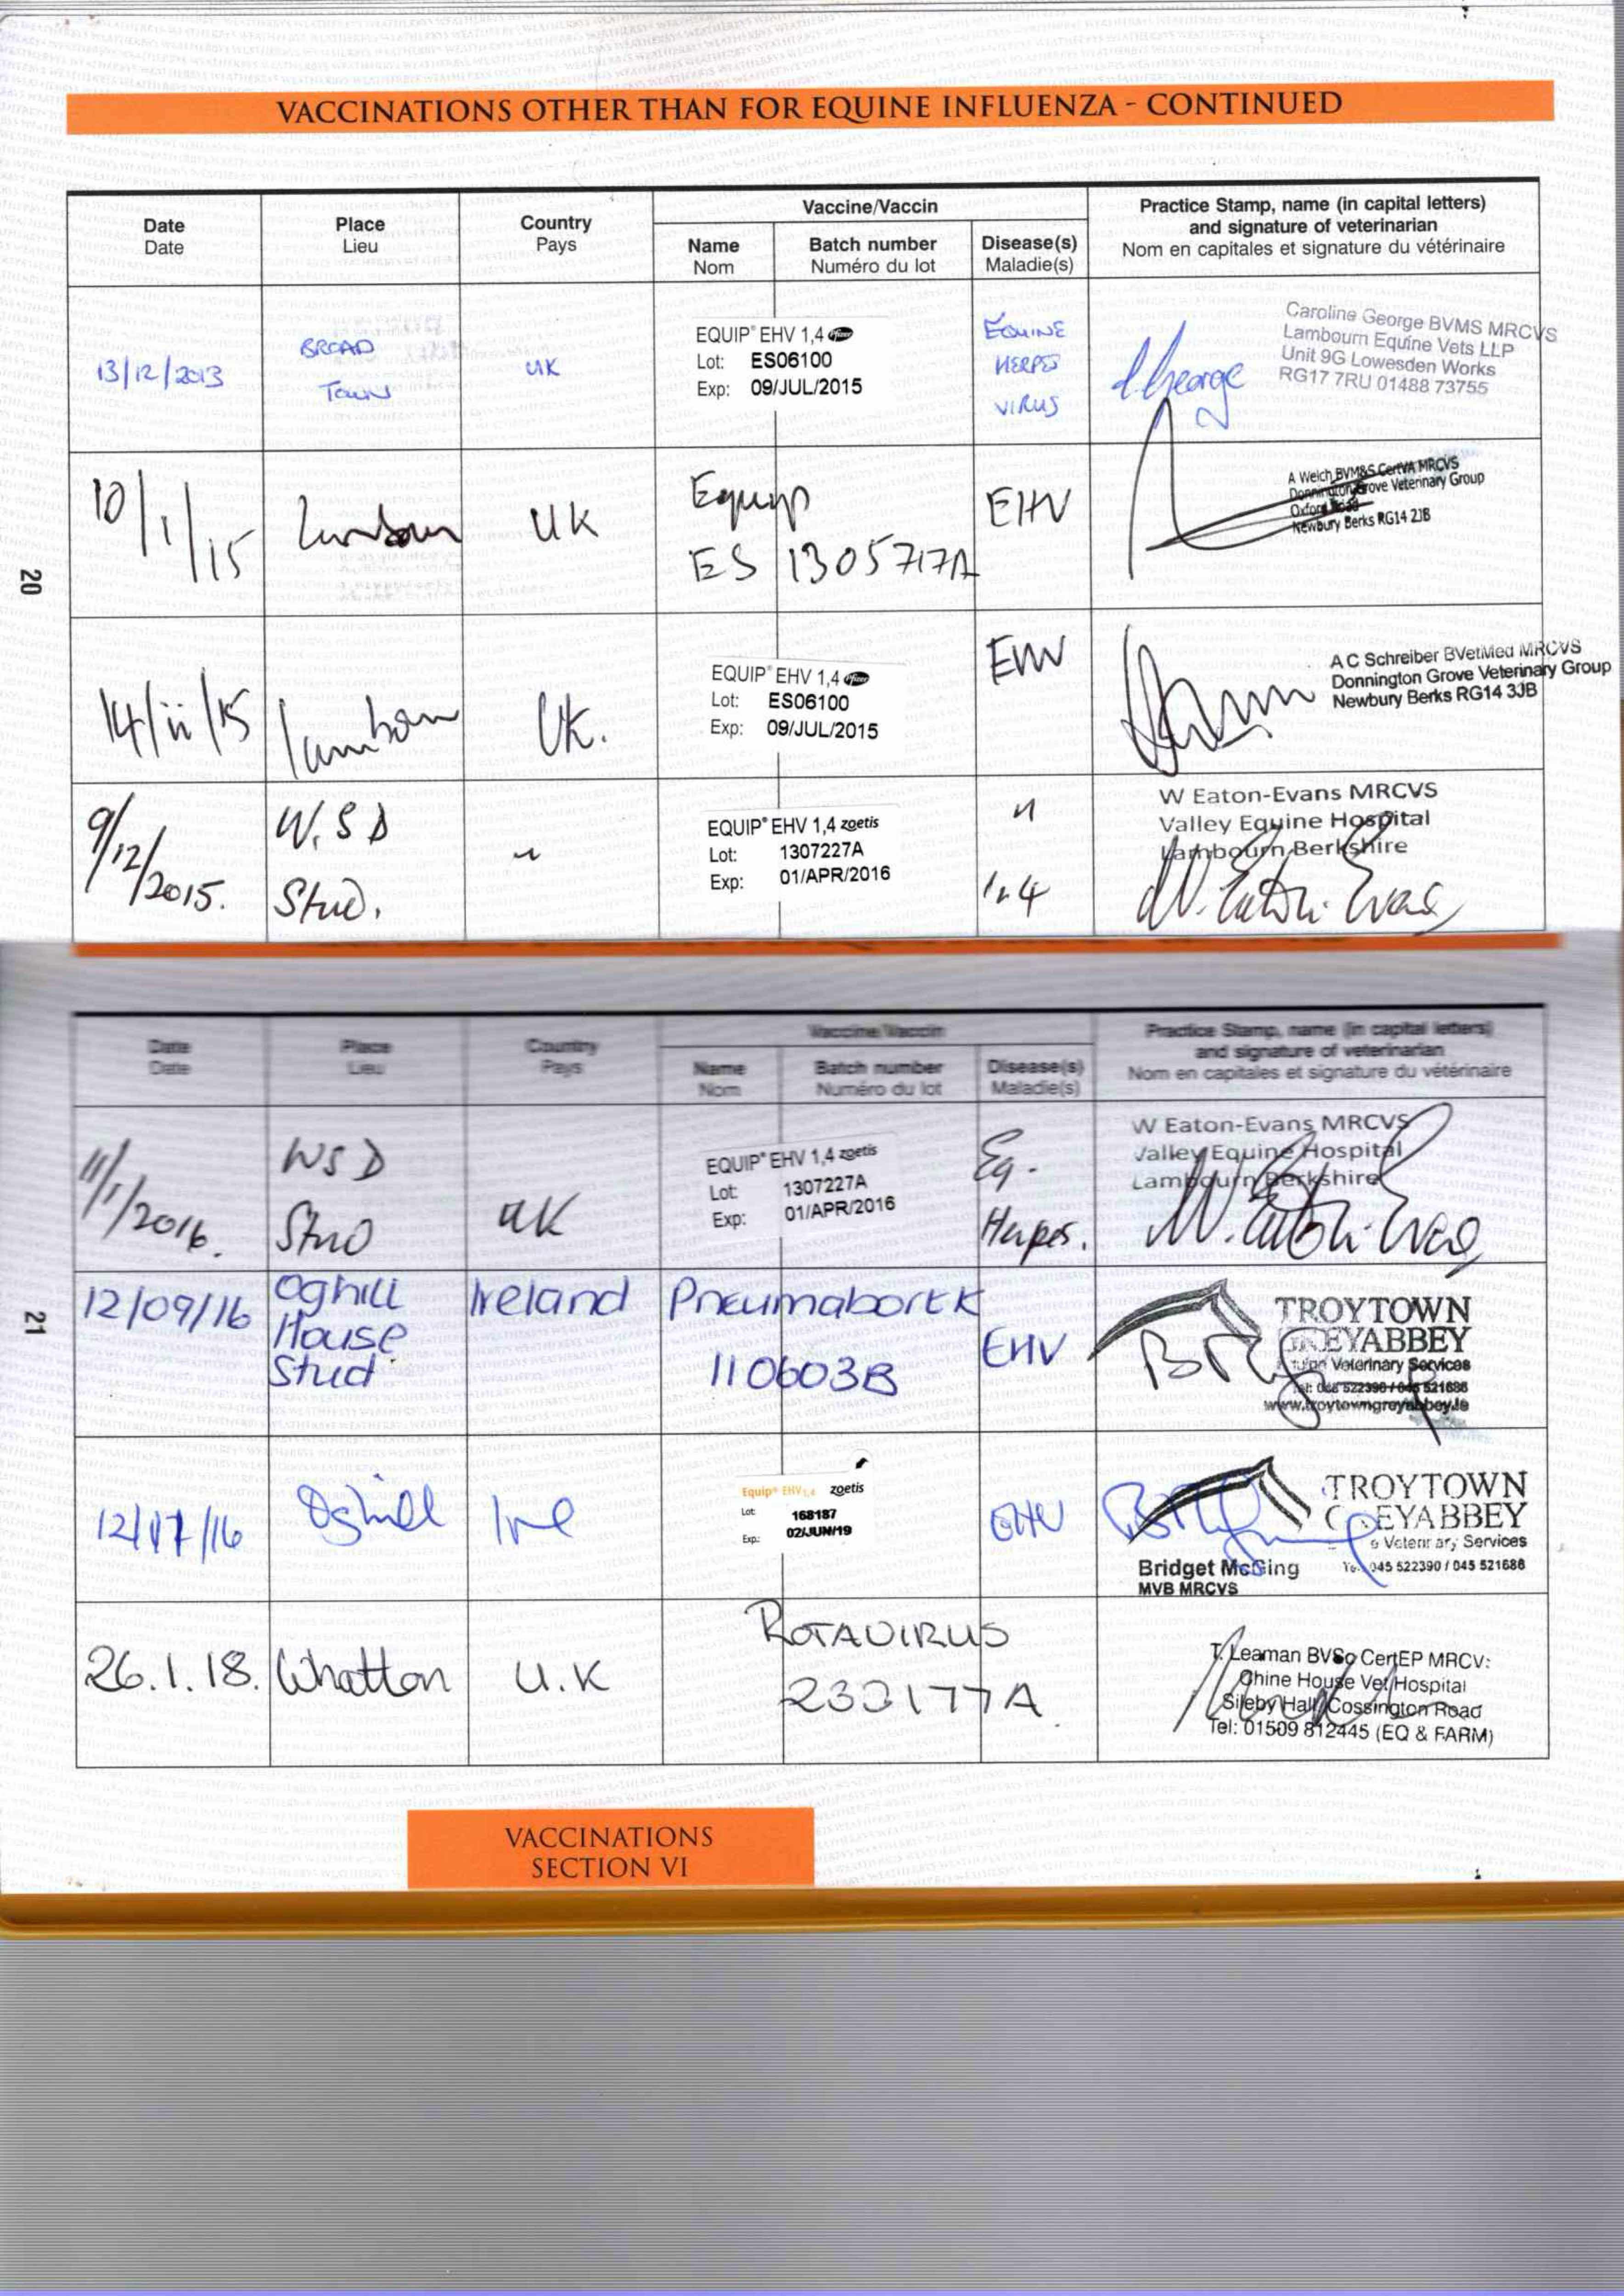 VACCINATIONS OTHER THAN FOR EQUINE INFLUENZA - CONTINUED
Date
Date
Place
Lieu
Country
Pays
Vaccine/Vaccin
Name
Nom
Batch number
Numéro du lot
Disease(s)
Maladie(s)
Practice Stamp, name (in capital letters)
and signature of veterinarian
Nom en capitales et signature du vétérinaire
13/12/2013
BROAD
TOWN
UK
EQUIP® EHV 1,4 Pfizer
Lot: ES06100
Exp: 09/JUL/2015
EQUINE
HERPES
VIRUS
Caroline George BVMS MRCVS
Lambourn Equine Vets LLP
Unit 9G Lowesden Works
RG17 7RU 01488 73755
10/1/15
UK
Equip
ES 1305717A
EHV
A Welch BVM&S CertVA MRCVS
Donnington Grove Veterinary Group
Oxford Road
Newbury Berks RG14 2JB
20
14/ii/15
Lambourn
UK.
EQUIP® EHV 1,4 Pfizer
Lot: ES06100
Exp: 09/JUL/2015
EHV
A C Schreiber BVetMed MRCVS
Donnington Grove Veterinary Group
Newbury Berks RG14 3JB
9/12/2015.
W.S D
Stud.
"
EQUIP® EHV 1,4 zoetis
Lot: 1307227A
Exp: 01/APR/2016
"
1,4
W Eaton-Evans MRCVS
Valley Equine Hospital
Lambourn Berkshire
W. Eaton-Evans
Date
Date
Place
Lieu
Country
Pays
Vaccine/Vaccin
Name
Nom
Batch number
Numéro du lot
Disease(s)
Maladie(s)
Practice Stamp, name (in capital letters)
and signature of veterinarian
Nom en capitales et signature du vétérinaire
11/1/2016.
WSD
Stud
UK
EQUIP® EHV 1,4 zoetis
Lot: 1307227A
Exp: 01/APR/2016
Eq.
Herpes.
W Eaton-Evans MRCVS
Valley Equine Hospital
Lambourn Berkshire
W. Eaton-Evans
21
12/09/16
Oghill
House
Stud
Ireland
Pneumabort K
110603B
EHV
TROYTOWN
GREYABBEY
Veterinary Services
Tel: 045 522390 / 045 521686
www.troytowngreyabbey.ie
Oghill
Ire
Equip® EHV 1,4 zoetis
Lot: 168187
Exp: 02/JUN/19
EHV
TROYTOWN
GREYABBEY
Veterinary Services
045 522390 / 045 521686
Bridget McGing
MVB MRCVS
26.1.18.
Whatton
U.K
ROTAVIRUS
T. Leaman BVSc CertEP MRCV:
Chine House Vet Hospital
Sileby Hall Cossington Road
Tel: 01509 812445 (EQ & FARM)
VACCINATIONS
SECTION VI